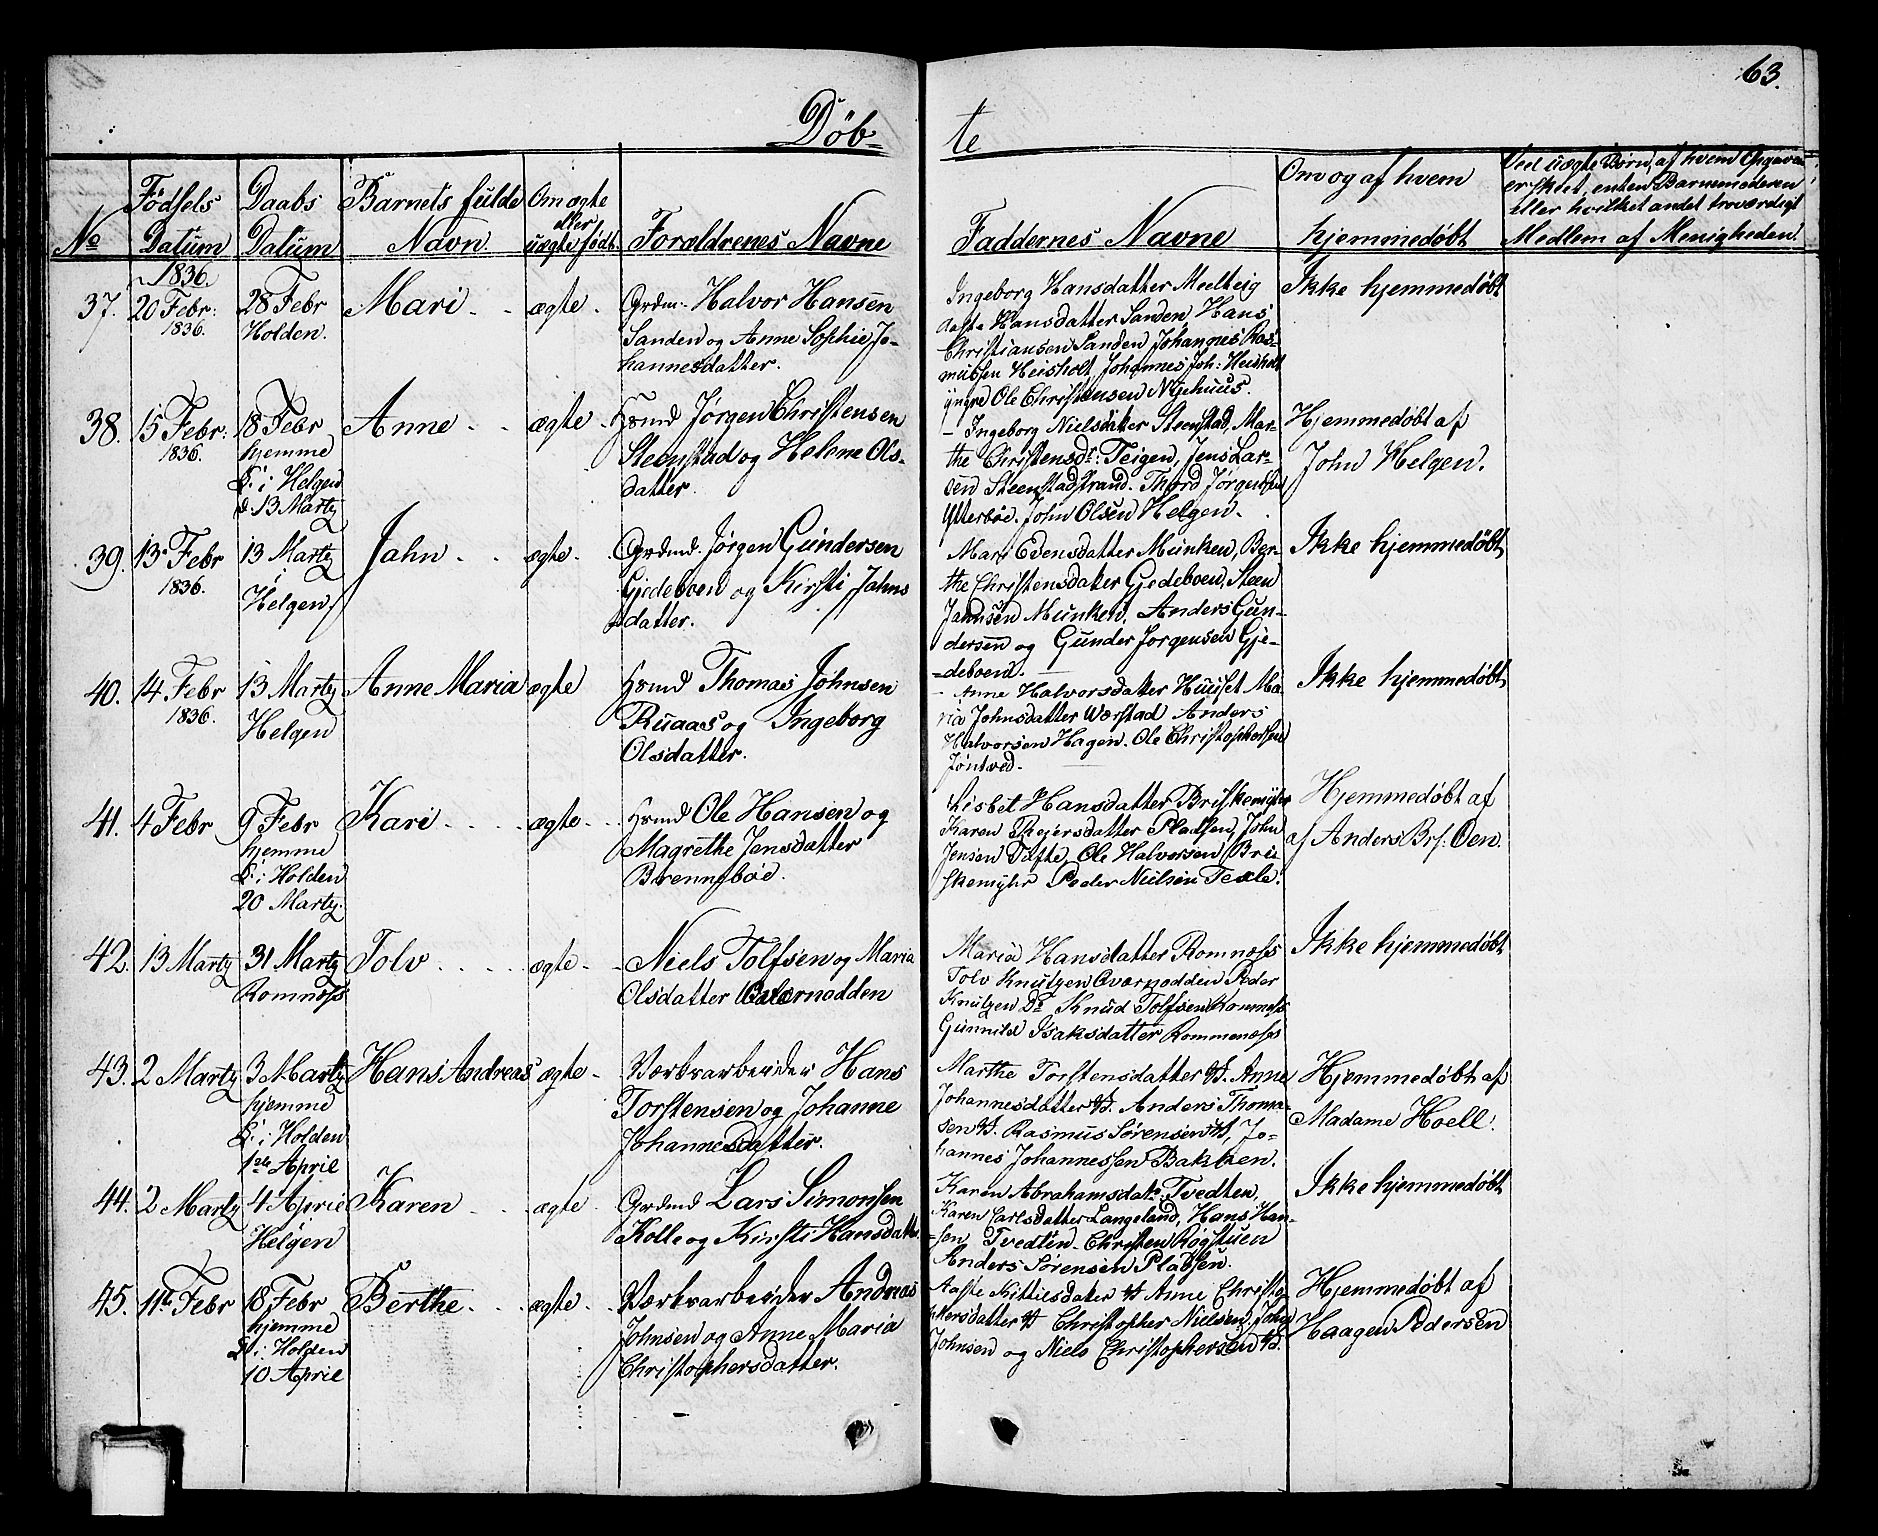 63.
Döbte
No
Födsels Datum
Daabs Datum
Barnets fulde Navn.
Om ægte eller uægte födt.
Forældrenes Navne
Faddernes Navne
Om og af hvem hjemmedöbt
Ved uægte Börn, af hvem Opgaven
er skeet, enten Barnemoderen
eller hvilket andet troværdigt
Medlem af Menigheden.
1836.
37.
20 Febr:
1836.
28 Febr
Holden.
Mari
ægte
Grdm: Halvor Hansen
Sanden og Anne Sophie Jo-
hannesdatter.
Ingeborg Hansdatter Meelteig
Aaste Hansdatter Sanden Hans
Christiansen Sanden Johannes Ras-
mussen Heisholt, Johannes Joh: Heisholt
yngre Ole Christensen Nyehuus.
Ikke hjemmedöbt
38.
15 Febr:
1836.
18 Febr
hjemme
i Helgen
d. 13 Marty
Anne
ægte
Hsmd Jörgen Christensen
Steenstad og Helene Ols-
datter.
Ingeborg Nielsdatter Steenstad, Mar-
the Christensdr: Teigen, Jens Lar-
sen Steenstadstrand. Thord Jörgensen
Ytterböe. John Olsen Helgen.
Hjemmedöbt af
John Helgen.
39.
13 Febr
1836.
13 Marty
i
Helgen
Jahn
ægte
Grdmd. Jörgen Gundersen
Gjedeboen og Kirsti Jahns
datter.
Mari Edensdatter Munken, Ber-
the Christensdatter Gjedeboen, Steen
Jahnsen Munken, Anders Gun-
dersen og Gunder Jorgensen Gje-
deboen.
Ikke hjemmedöbt
40.
14 Febr
1836.
13 Marty
Helgen
Anne Maria
ægte
Hsmd Thomas Johnsen
Ruaas og Ingeborg
Olsdatter.
Anne Halvorsdatter Huuset Ma-
ria Johnsdatter Værstad Anders
Halvorsen Hagen. Ole Christophersen
Jöntved.
Ikke hjemmedöbt
41.
4 Febr
9 Febr
hjemme
i Holden
20 Marty.
Kari
ægte
Hsmd Ole Hansen og
Magrethe Jensdatter
Brenneböe.
Lisbet Hansdatter Briskemyhr
Karen Rejersdatter Pladsen, John
Jensen Tufte Ole Halvorsen Bri-
skemyhr Peder Nielsen Texle.
Hjemmedöbt af
af Anders Brs: Oen.
42.
13 Marty
31 Marty
Romnæss
Tolv
ægte
Niels Tolfsen og Maria
Olsdatter Oværnodden
Maria Hansdatter Romnæss
Tolv Knutzen Oværnodden Peder
Knutzen Do Knud Tolfsen Romnæss
Gunnild Isaksdatter Rommenæss
Ikke hjemmedöbt
43.
2 Marty
3 Marty
hjemme
i Holden
1ste April
Hans Andreas
ægte
Værksarbeider Hans
Torstensen og Johanne
Johannesdatter.
Marthe Torstensdatter V. Anne
Johannesdatter V. Anders Thoma-
sen V. Rasmus Sörensen V, Jo-
hannes Johannessen Bakken.
Hjemmedöbt af
Madame Hoell.
44.
2 Marty
4 April
Helgen
Karen
ægte
Grdmd Lars Simonsen
Kolle og Kirsti Hansdatter
Karen Abrahamsdatr: Tvedten,
Karen Carlsdatter Langeland, Hans Han-
sen Tvedten Christen Rögstuen
Anders Sörensen Pladsen.
Ikke hjemmedöbt
45.
11te Febr
18 Febr
hjemme
i Holden
10 April
Berthe
ægte
Værksarbeider Andreas
Johnsen og Anne Maria
Christophersdatter.
Aaste Kittilsdatter V Anne Christo-
phersdatter V Christopher Nielsen, John
Johnsen og Niels Christophersen V.
Hjemmedöbt af
Haagen Pedersen